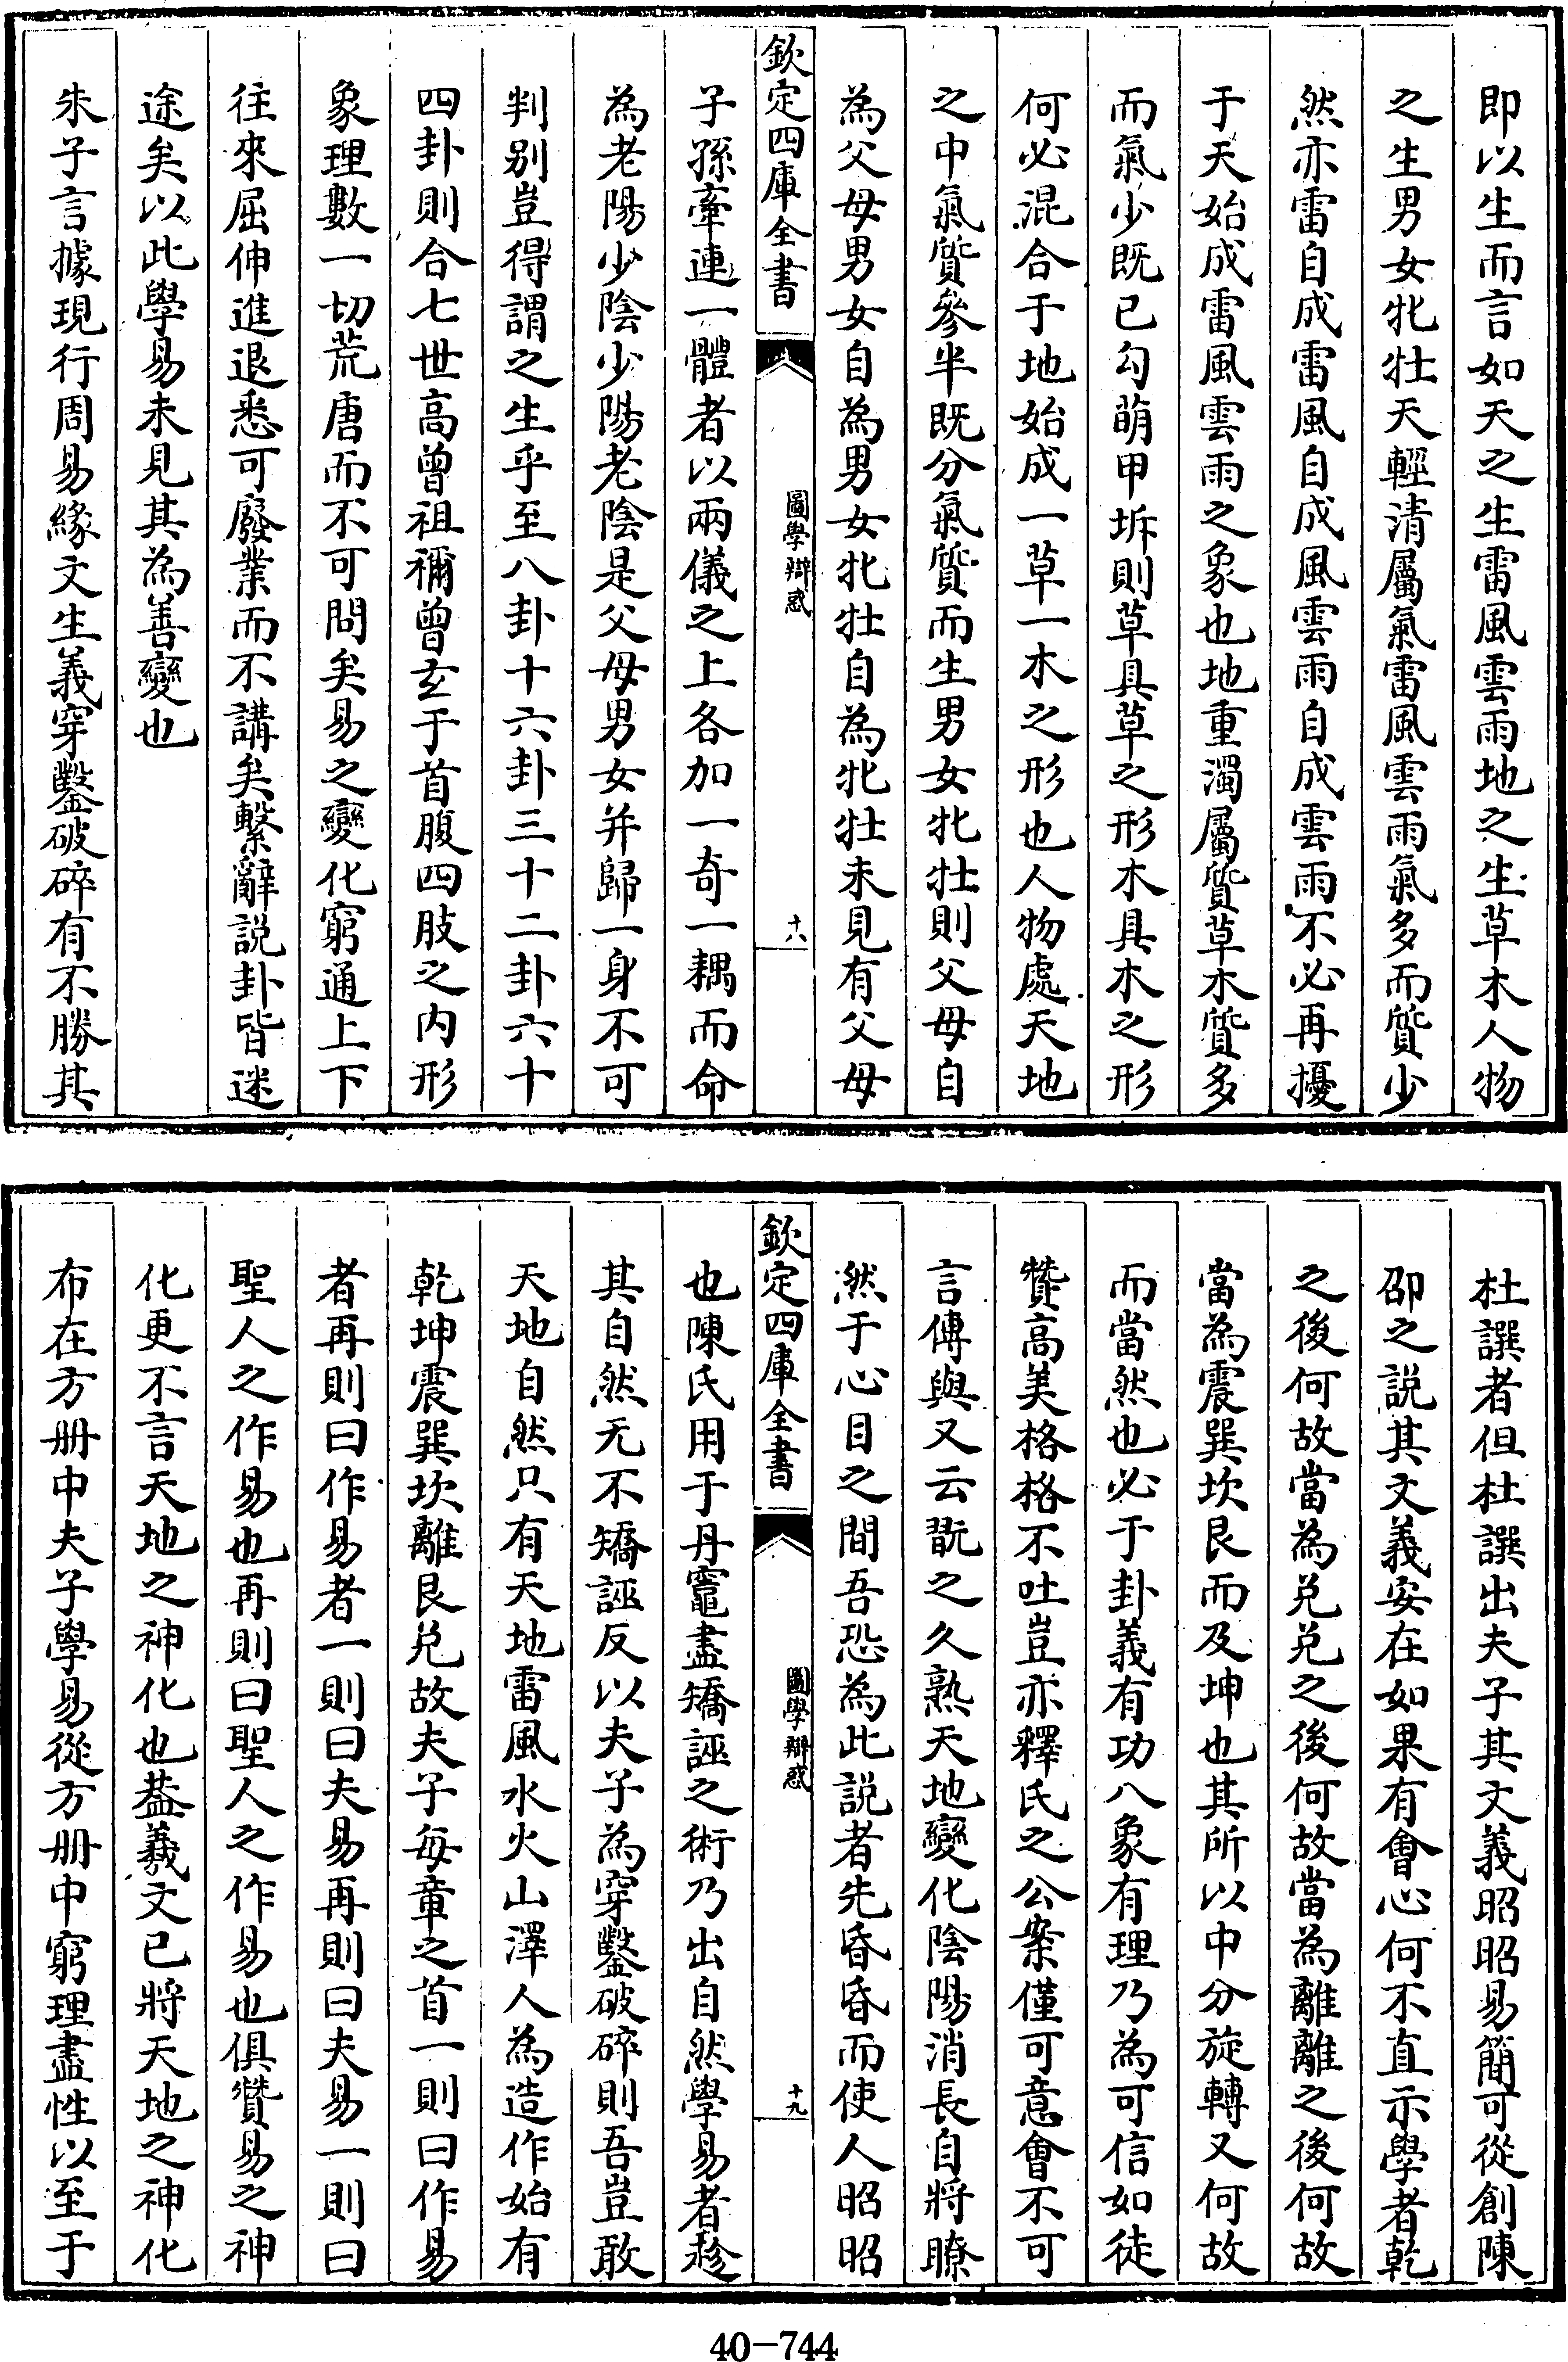 即以生而言如天之生雷風雲雨地之生草木人物
之生男女牝牡天輕清屬氣雷風雲雨氣多而質少
然亦雷自成雷風自成風雲雨自成雲雨不必再擾
于天始成雷風雲雨之象也地重濁屬質草木質多
而氣少既已勾萌甲坼則草具草之形木具木之形
何必混合于地始成一草一木之形也人物處天地
之中氣質參半既分氣質而生男女牝牡則父母自
為父母男女自為男女牝牡自為牝牡未見有父母
欽定四庫全書
圖學辯惑
十八
子孫牽連一體者以兩儀之上各加一奇一耦而命
為老陽少陰少陽老陰是父母男女并歸一身不可
判别豈得謂之生乎至八卦十六卦三十二卦六十
四卦則合七世高曾祖禰曾玄于首腹四肢之内形
象理數一切荒唐而不可問矣易之變化窮通上下
往來屈伸進退悉可廢業而不講矣繫辭説卦皆迷
途矣以此學易未見其為善變也
朱子言據現行周易緣文生義穿鑿破碎有不勝其
杜譔者但杜譔出夫子其文義昭昭易簡可從創陳
邵之説其文義安在如果有會心何不直示學者乾
之後何故當為兑兑之後何故當為離離之後何故
當為震巽坎艮而及坤也其所以中分旋轉又何故
而當然也必于卦義有功八象有理乃為可信如徒
贊高美格格不吐豈亦釋氏之公案僅可意會不可
言傳與又云翫之久熟天地變化陰陽消長自將瞭
然于心目之間吾恐為此説者先昏昏而使人昭昭
欽定四庫全書
圖學辯惑
十九
也陳氏用于丹竈盡矯誣之術乃出自然學易者趁
其自然无不矯誣反以夫子為穿鑿破碎則吾豈敢
天地自然只有天地雷風水火山澤人為造作始有
乾坤震巽坎離艮兑故夫子每章之首一則曰作易
者再則曰作易者一則曰夫易再則曰夫易一則曰
聖人之作易也再則曰聖人之作易也俱贊易之神
化更不言天地之神化也葢羲文已將天地之神化
布在方册中夫子學易從方册中窮理盡性以至于
40-744